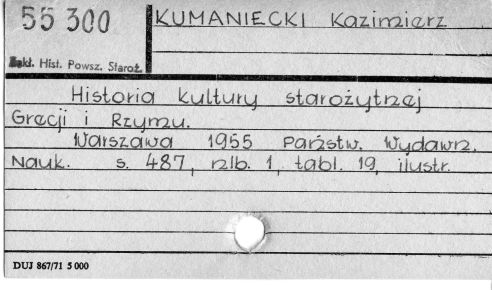 55 300
KUMANIECKI Kazimierz
Zakł. Hist. Powsz. Staroż.
Historia kultury starożytnej
Grecji i Rzymu.
Warszawa 1955 Państw. Wydawn.
Nauk. s. 487, nlb. 1, tabl. 19, ilustr.
DUJ 867/71 5 000